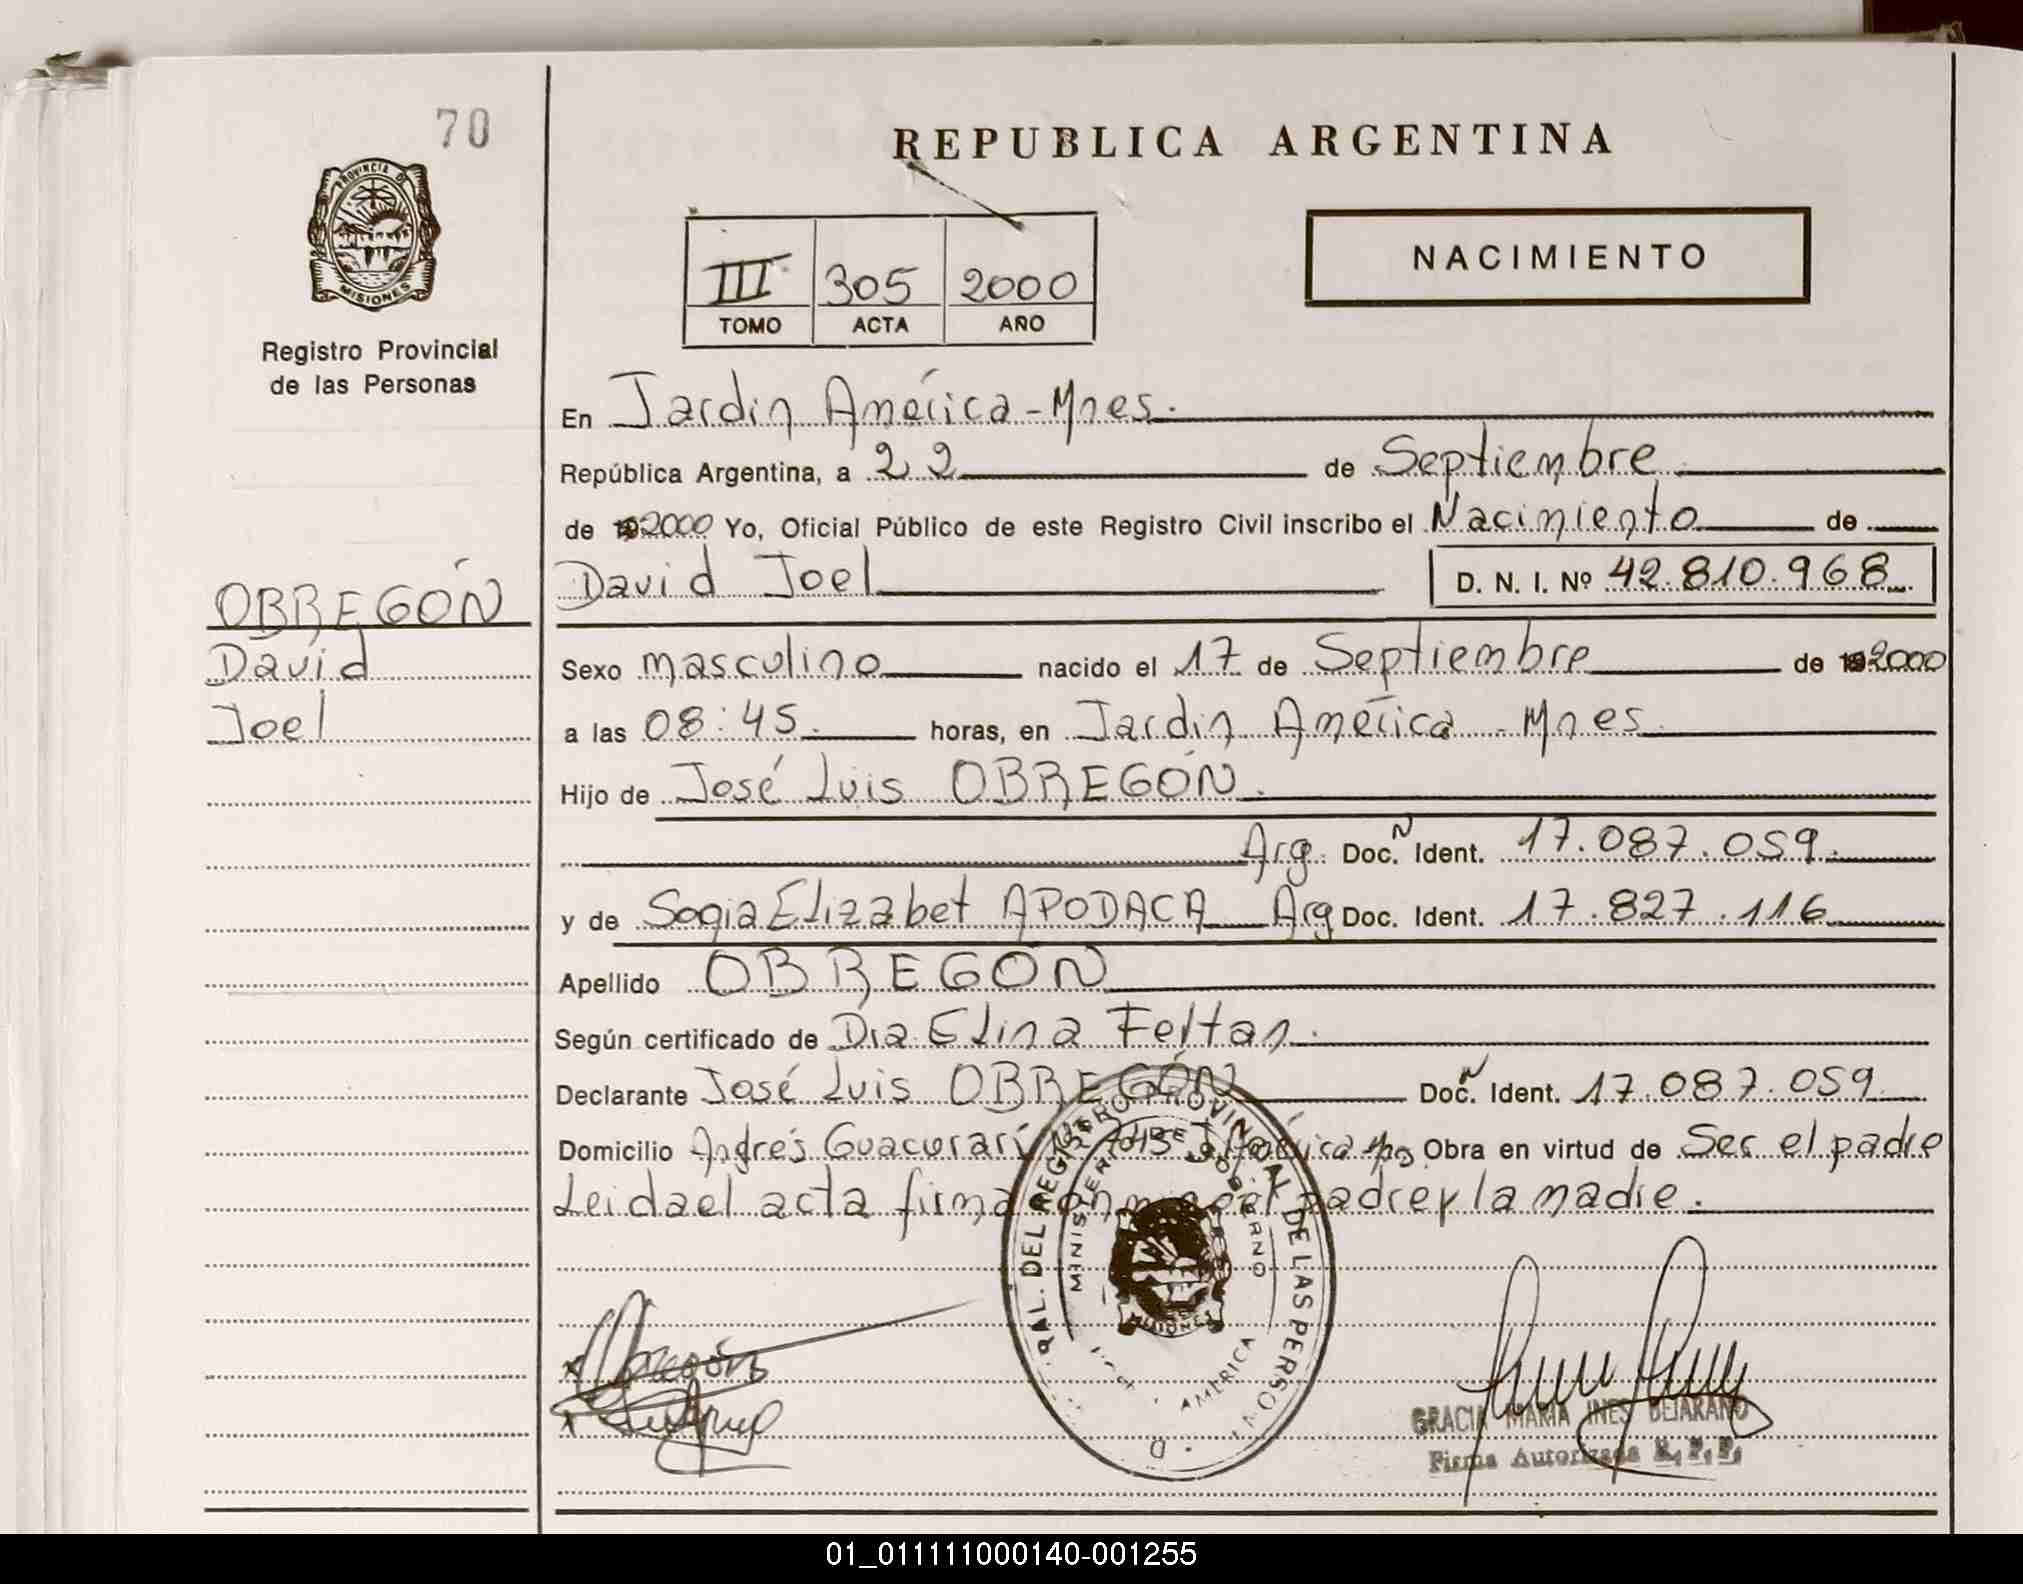 70
REPUBLICA ARGENTINA
PROVINCIA DE
MISIONES
III 305 2000
TOMO ACTA AÑO
NACIMIENTO
Registro Provincial
de las Personas
En Jardin América-Mnes.
República Argentina, a 22 de Septiembre
de 2000 Yo, Oficial Público de este Registro Civil inscribo el Nacimiento de
OBREGÓN
David Joel D. N. I. Nº 42.810.968
David
Sexo masculino nacido el 17 de Septiembre de 2000
Joel
a las 08:45 horas, en Jardin América - Mnes.
Hijo de José Luis OBREGÓN.
Arg. Doc. N Ident. 17.087.059.
y de Elizabet APODACA Arg Doc. Ident. 17.827.116
Apellido OBREGON
Según certificado de Dra Elina Feltan.
Declarante José Luis OBREGÓN Doc. N Ident. 17.087.059.
Domicilio Andrés Guacurarí América Obra en virtud de Ser el padre
Leida el acta firma padre y la madre.
RAL. DEL REGISTRO PROVINCIAL DE LAS PERSON
MINISTERIO DE GOBIERNO
MISIONES
AMERICA
GRACIA MARIA INES BEJARANO
Firma Autorizada R. P. P.
01_011111000140-001255